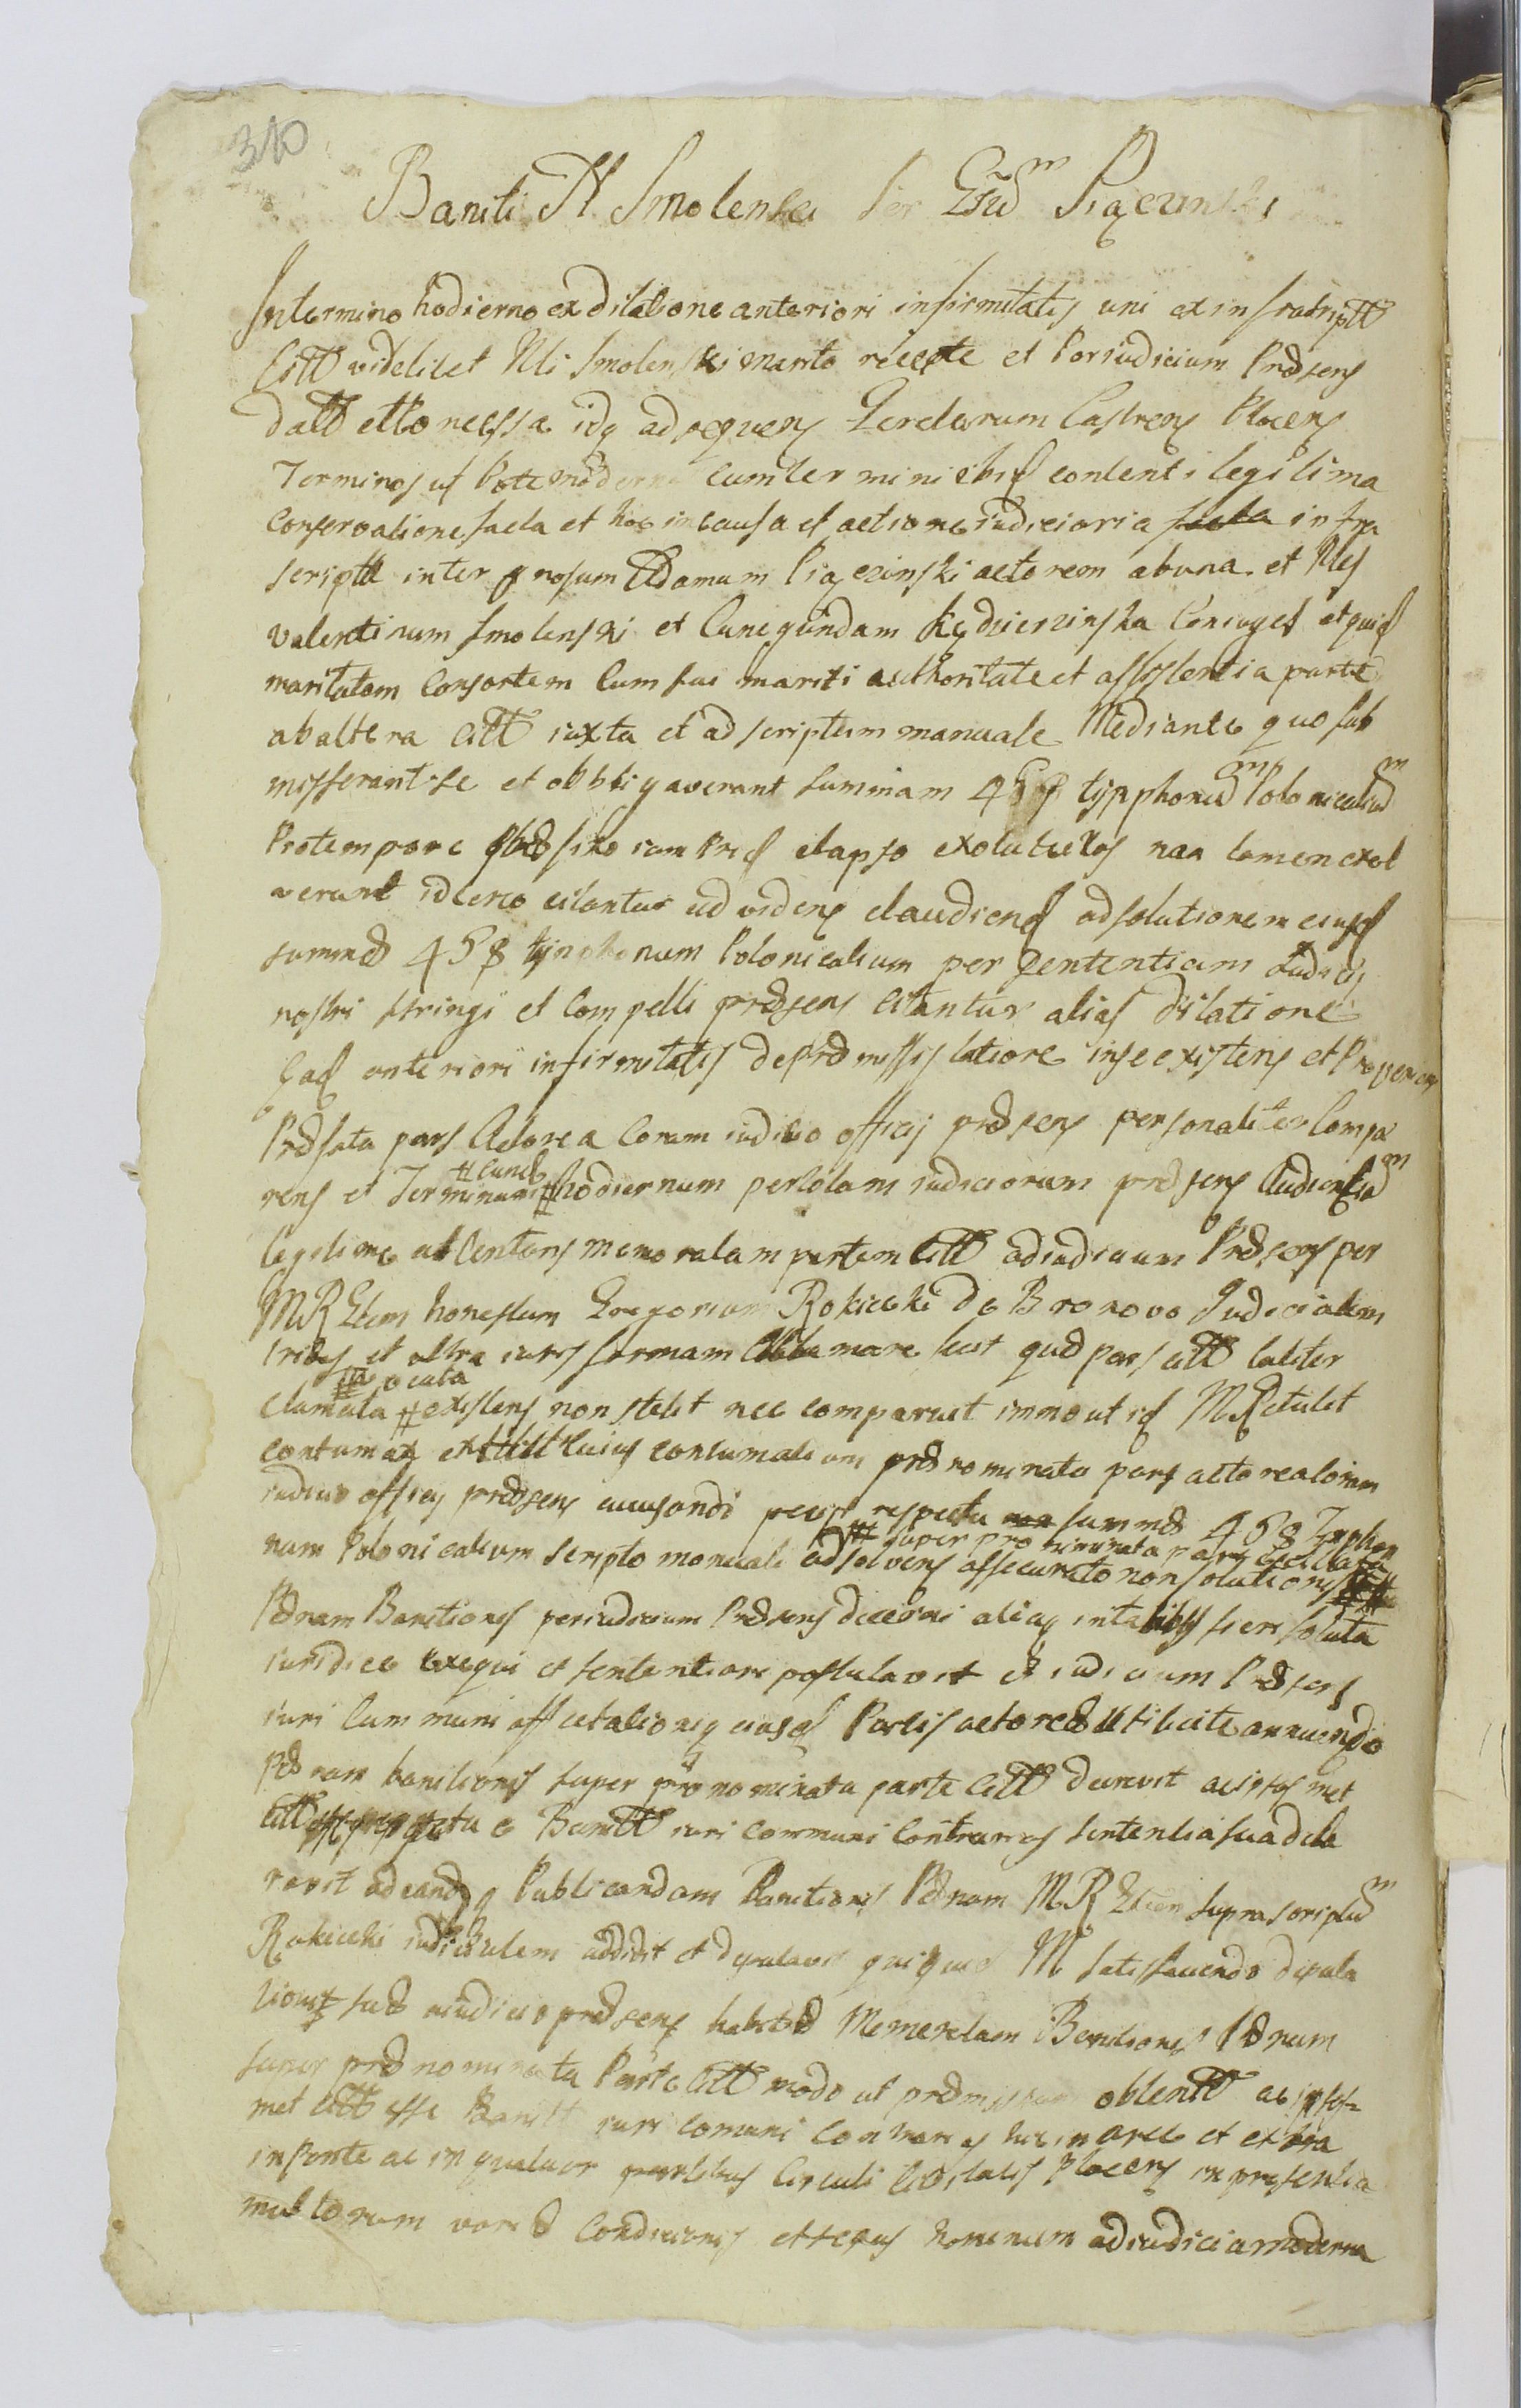 310
Baniti N Smolenski per Grsum Piączinski
In termino hodierno ex dilatione anteriori infirmitatis uni ex infrascriptt
Citt videlicet Nli Smolenski marito recepte et Per iudicium Præsens
datt et Concessa idq ad sequens Querelarum Castrens Plocens
Terminos ut Pote modern cum termini ibid contenti legitima
conservatione facta et hoc in causa et actione iudiciaria infra
scriptt inter grosum Adamum Piączinski actorem ab una et Nles
Valentinum Smolenski et Cunegundam Kędzierzinska Coniuges et quid
maritatam Consortem Cum sui mariti authoritate et assistentia parte
ab altera Citt iuxta et ad scriptum manuale Mediante quo sub
misserant se et obbligaverant summam 458 tynphonum Polonicalium
Pro tempore certo iam Prid elapso exoluturos non tamen exol
verunt idcirco citantur ad videns et audiend ad solutionem eiusd
summæ 458 tynphonum Polonicalium per sententiam Iudicii
nostri stringi et Compelli præsens Citantur alias dilatione
ead anteriori infirmitatis de præmissis latiore in se existens et Proveniens
Præfata pars Actorea Coram iudicio officii præsens personaliter Compa
rens et Terminum # hodiernum per totam iudiciorum præsens Audientiam
# eund
legitime attentans memoratam partem Citt ad iudicium Præsens per
MR Glem honestum Gregorium Rokicki de Bronovo Iudicialem
tribus et ultra iuris formam Acclamare fecit quæ pars citt taliter
clamata # existens non stetit nec comparuit immo ut id MR retulit
# vocata
contumax extitit Cuius contumaciam prænominata pars actorea Coram
iudicio officii præsens accusandi respectu summæ 458 Tynphon
num Polonicalium scripto manuali ad solvens assecurato non solutionis
# super prænominata parte Citata
Pænam Banitionis per iudicium Præsens decerni aliaq in talibus fieri solita
iuridice exequi et sententiare postulavit et iudicium Præsens
iuri Communi affectationiq eiusd Partis actoreæ utiliter annuendo
pænam banitionis super prænominata parte Citt decrevit ac ipsos met
Citt esse Banitt iuri communi Contrarios sententia sua decla
ravit ad eandq Publicandam Banitionis Pænam MR Glem suprascriptum
Rokicki iudicialem addidit et deputavit qui quid M satisfaciendo deputa
tioni suæ a iudicio præsens habitæ Memoratam Banitionis Pænam
super prænominata Parte Citt modo ut præmissum obtentt ac ipsos
met Citt esse Banitt iuri Comuni Contrarios hic in arce et extra
in Ponte ac in quatuor partibus Circuli Civitatis Plocens in presentia
multorum variæ Conditionis et sexus hominum ad iudicia moderna